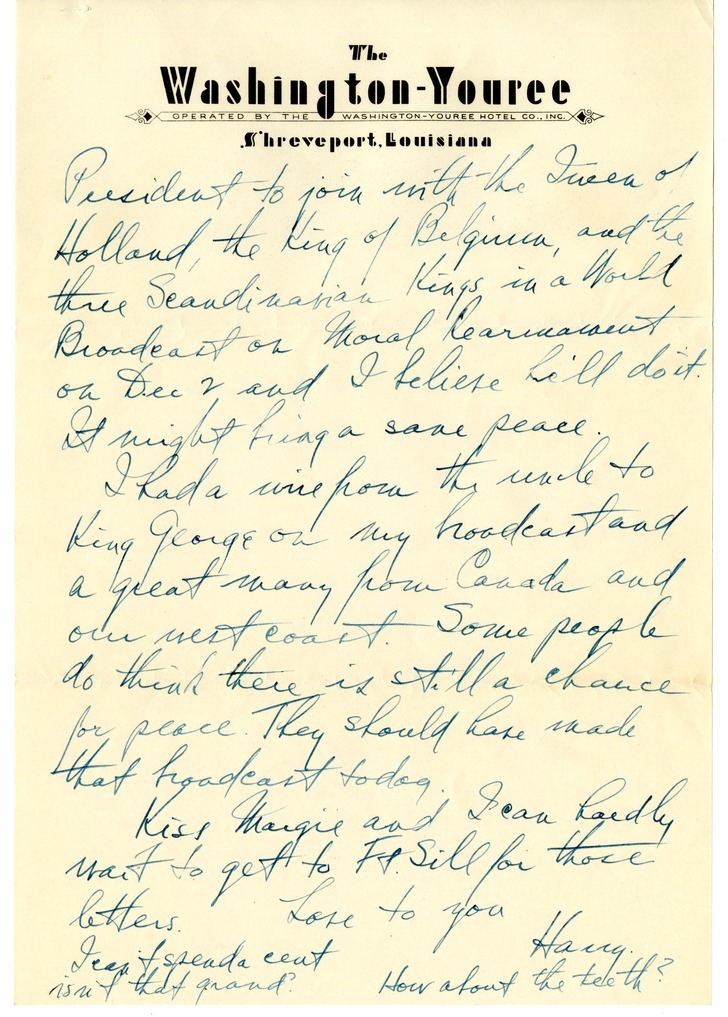 The
Washington-Youree
OPERATED BY THE WASHINGTON-YOUREE HOTEL CO., INC.
Shreveport, Louisiana
President to join with the Queen of
Holland, the King of Belgium, and the
three Scandinavian Kings in a World
Broadcast on Moral Rearmament
on Dec 2 and I believe he'll do it.
It might bring a sane peace.
I had a wire from the uncle to
King George on my broadcast and
a great many from Canada and
our west coast. Some people
do think there is still a chance
for peace. They should have made
that broadcast today.
Kiss Margie and I can hardly
wait to get to Ft. Sill for those
letters. Love to you
Harry.
I can't spend a cent
isn't that grand? How about the teeth?